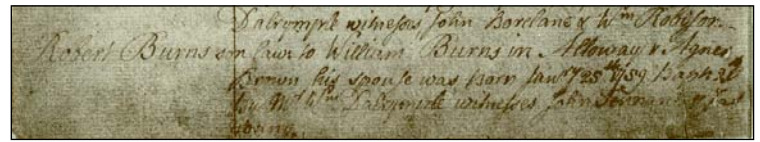 Dalrymple witnesses John Barclane & Wm Robison
Robert Burns son lawl to William Burns in Alloway & Agnes
Brown his spouse was born Janry 25th 1759 Bapd 26th
by Mr Wm Dalrymple witnesses John Tennant & Jas
Young